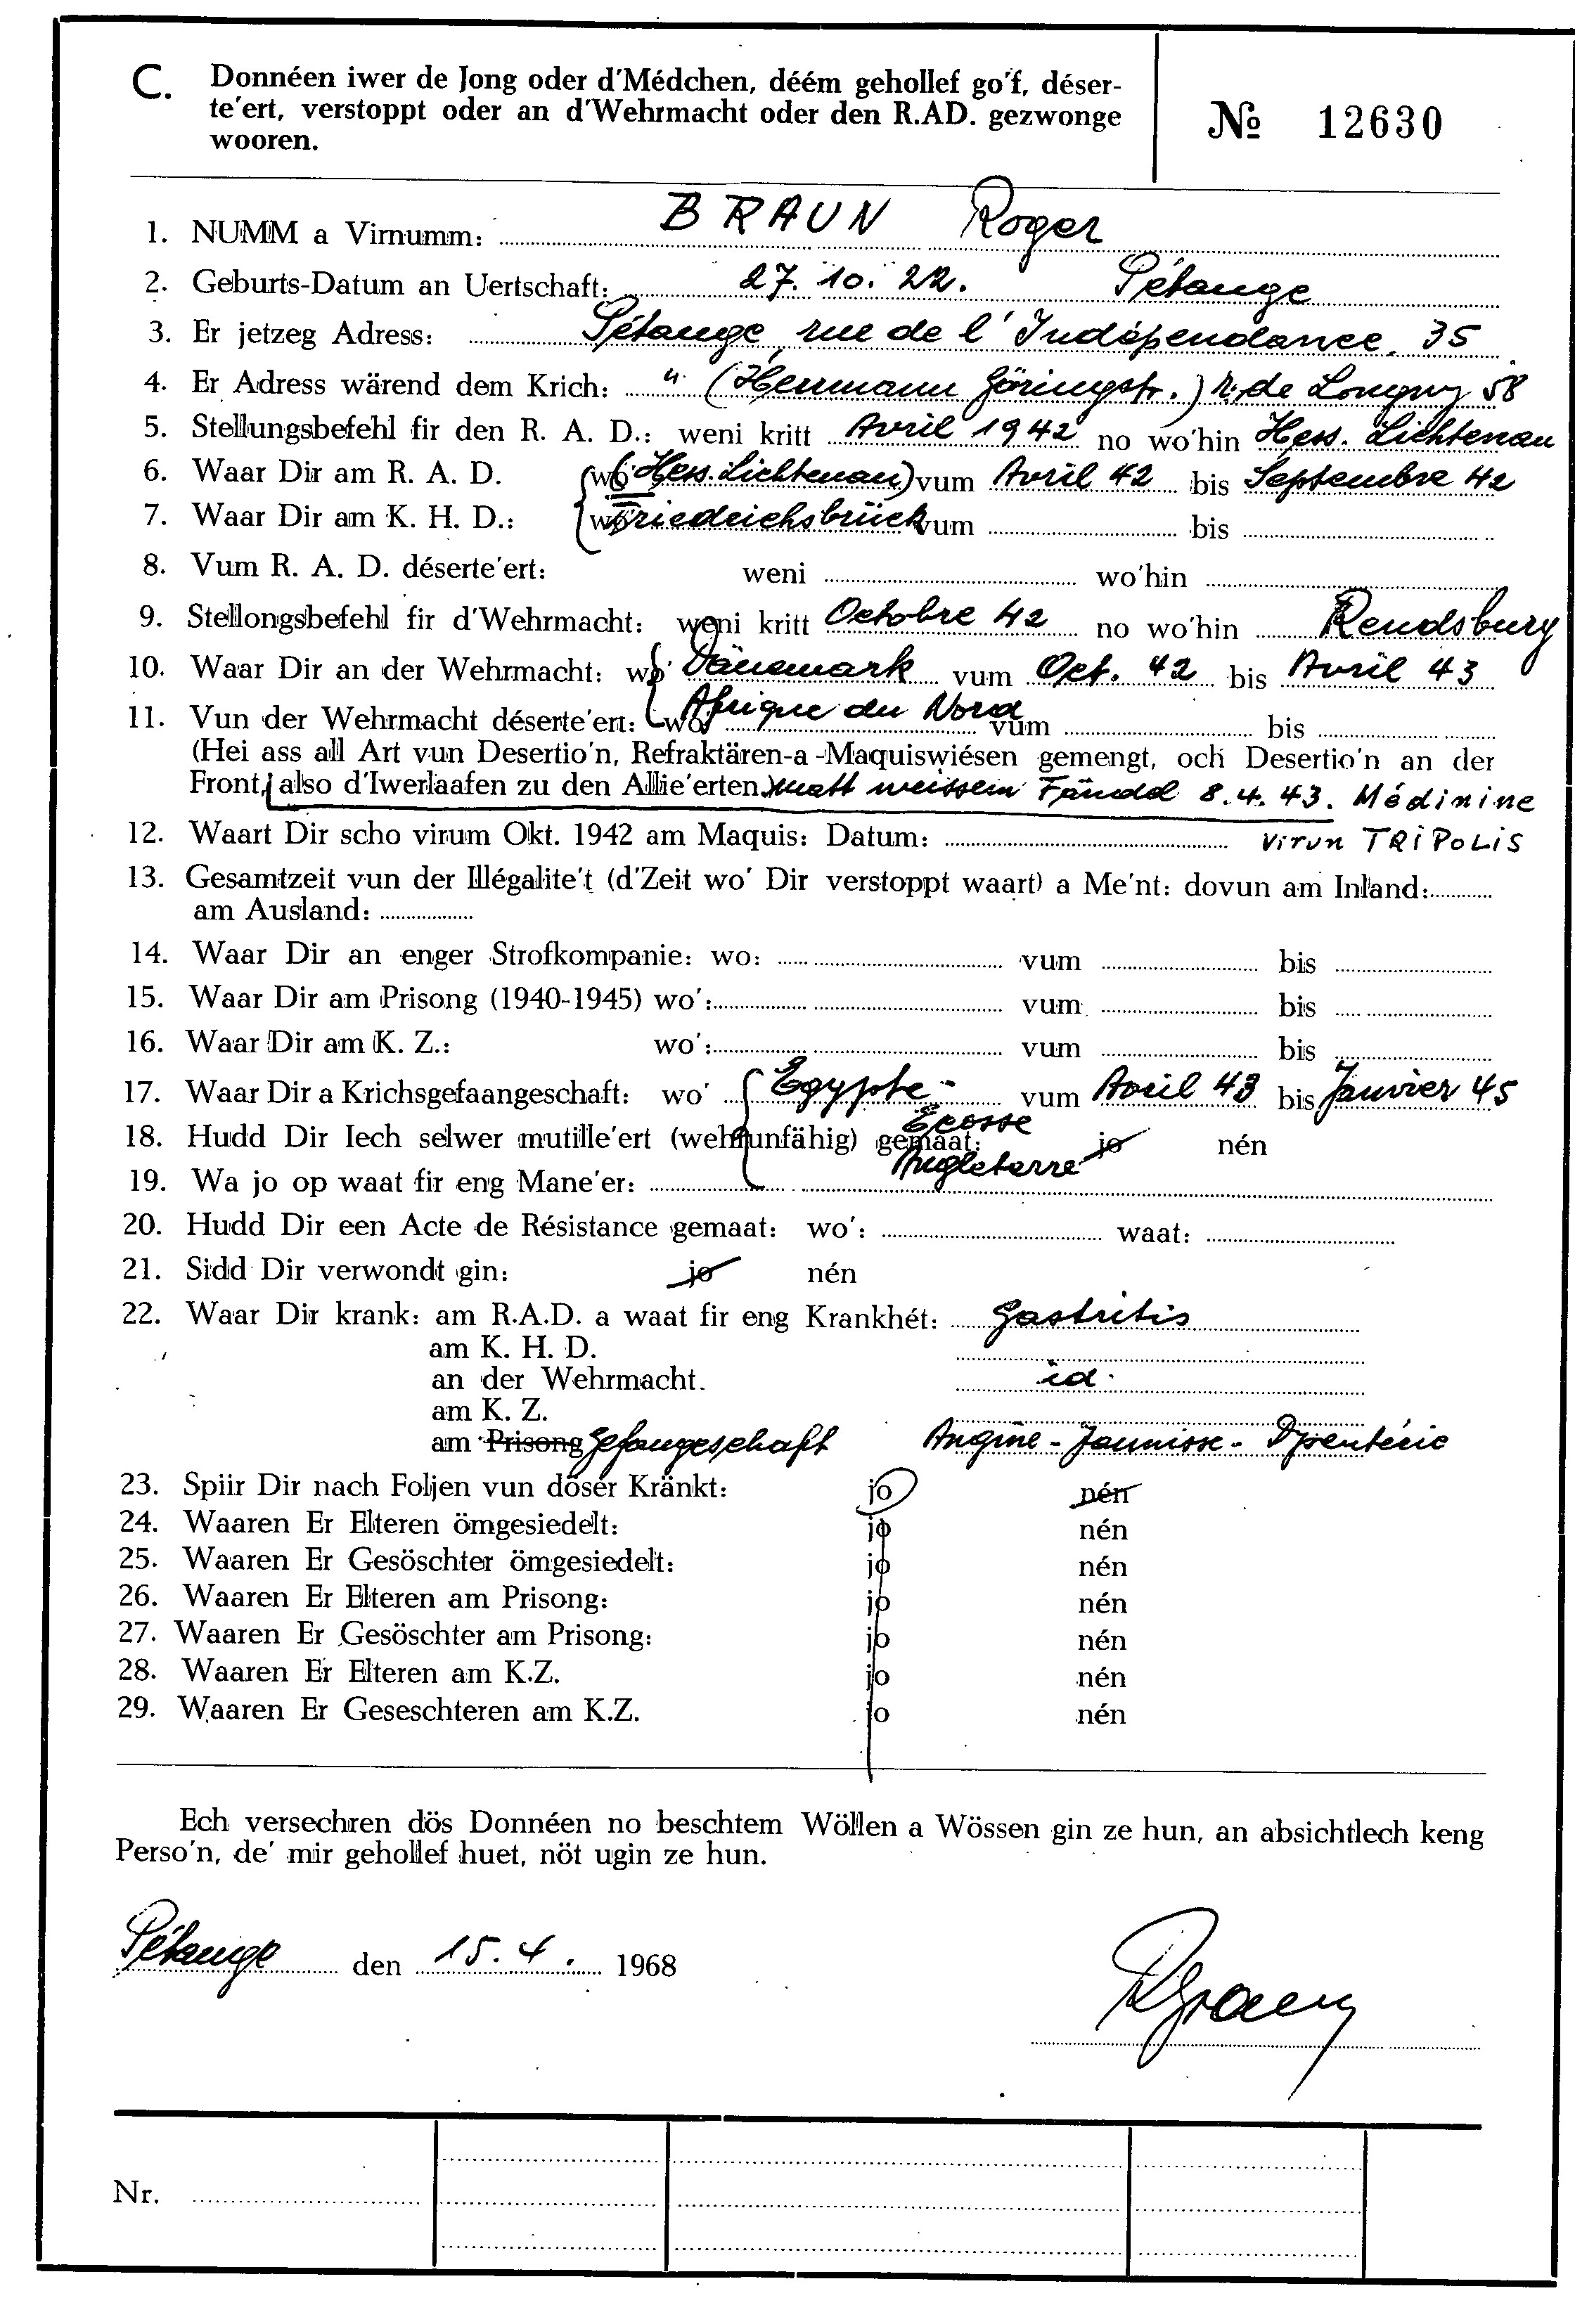 C. Donnéen iwer de Jong oder d'Médchen, déém gehollef go'f, déser-
te'ert, verstoppt oder an d'Wehrmacht oder den R.AD. gezwonge
wooren.
№ 12630
1. NUMM a Virnumm: BRAUN Roger
2. Geburts-Datum an Uertschaft: 27. 10. 22. Pétange
3. Er jetzeg Adress: Pétange, rue de l'Indépendance, 35
4. Er Adress wärend dem Krich: " (Herrmann Göringstr.) r. de Longwy 58
5. Stellungsbefehl fir den R. A. D.: weni kritt Avril 1942 no wo'hin Hess. Lichtenau
6. Waar Dir am R. A. D. wo' (Hess. Lichtenau) vum Avril 42 bis Septembre 42
7. Waar Dir am K. H. D.: wo' Friedrichsbrück vum bis
8. Vum R. A. D. déserte'ert: weni wo'hin
9. Stellongsbefehl fir d'Wehrmacht: weni kritt Octobre 42 no wo'hin Rendsburg
10. Waar Dir an der Wehrmacht: wo' Dänemark vum Oct. 42 bis Avril 43
11. Vun der Wehrmacht déserte'ert: wo' Afrique du Nord vum bis
(Hei ass all Art vun Desertio'n, Refraktären-a -Maquiswiésen gemengt, och Desertio'n an der
Front, also d'Iwerlaafen zu den Allie'erten) matt weissem Fändel 8.4.43. Médinine
12. Waart Dir scho virum Okt. 1942 am Maquis: Datum: virun TRIPOLIS
13. Gesamtzeit vun der Illégalite't (d'Zeit wo' Dir verstoppt waart) a Me'nt: dovun am Inland:
am Ausland:
14. Waar Dir an enger Strofkompanie: wo: vum bis
15. Waar Dir am Prisong (1940-1945) wo': vum bis
16. Waar Dir am K. Z.: wo': vum bis
17. Waar Dir a Krichsgefaangeschaft: wo' Egypte - vum Avril 43 bis Janvier 45
Ecosse
18. Hudd Dir Iech selwer mutille'ert (wehrunfähig) gemaat: jo nén
Angleterre
19. Wa jo op waat fir eng Mane'er:
20. Hudd Dir een Acte de Résistance gemaat: wo': waat:
21. Sidd Dir verwondt gin: jo nén
22. Waar Dir krank: am R.A.D. a waat fir eng Krankhét: Gastritis
am K. H. D.
an der Wehrmacht. id.
am K. Z.
am Prisong Gefangeschaft Angine - Jaunisse - Dysentérie
23. Spiir Dir nach Foljen vun döser Kränkt: jo nén
24. Waaren Er Elteren ömgesiedelt: jo nén
25. Waaren Er Gesöschter ömgesiedelt: jo nén
26. Waaren Er Elteren am Prisong: jo nén
27. Waaren Er Gesöschter am Prisong: jo nén
28. Waaren Er Elteren am K.Z. jo nén
29. Waaren Er Geseschteren am K.Z. jo nén
Ech versechren dös Donnéen no beschtem Wöllen a Wössen gin ze hun, an absichtlech keng
Perso'n, de' mir gehollef huet, nöt ugin ze hun.
Pétange den 15. 4. 1968
Nr.